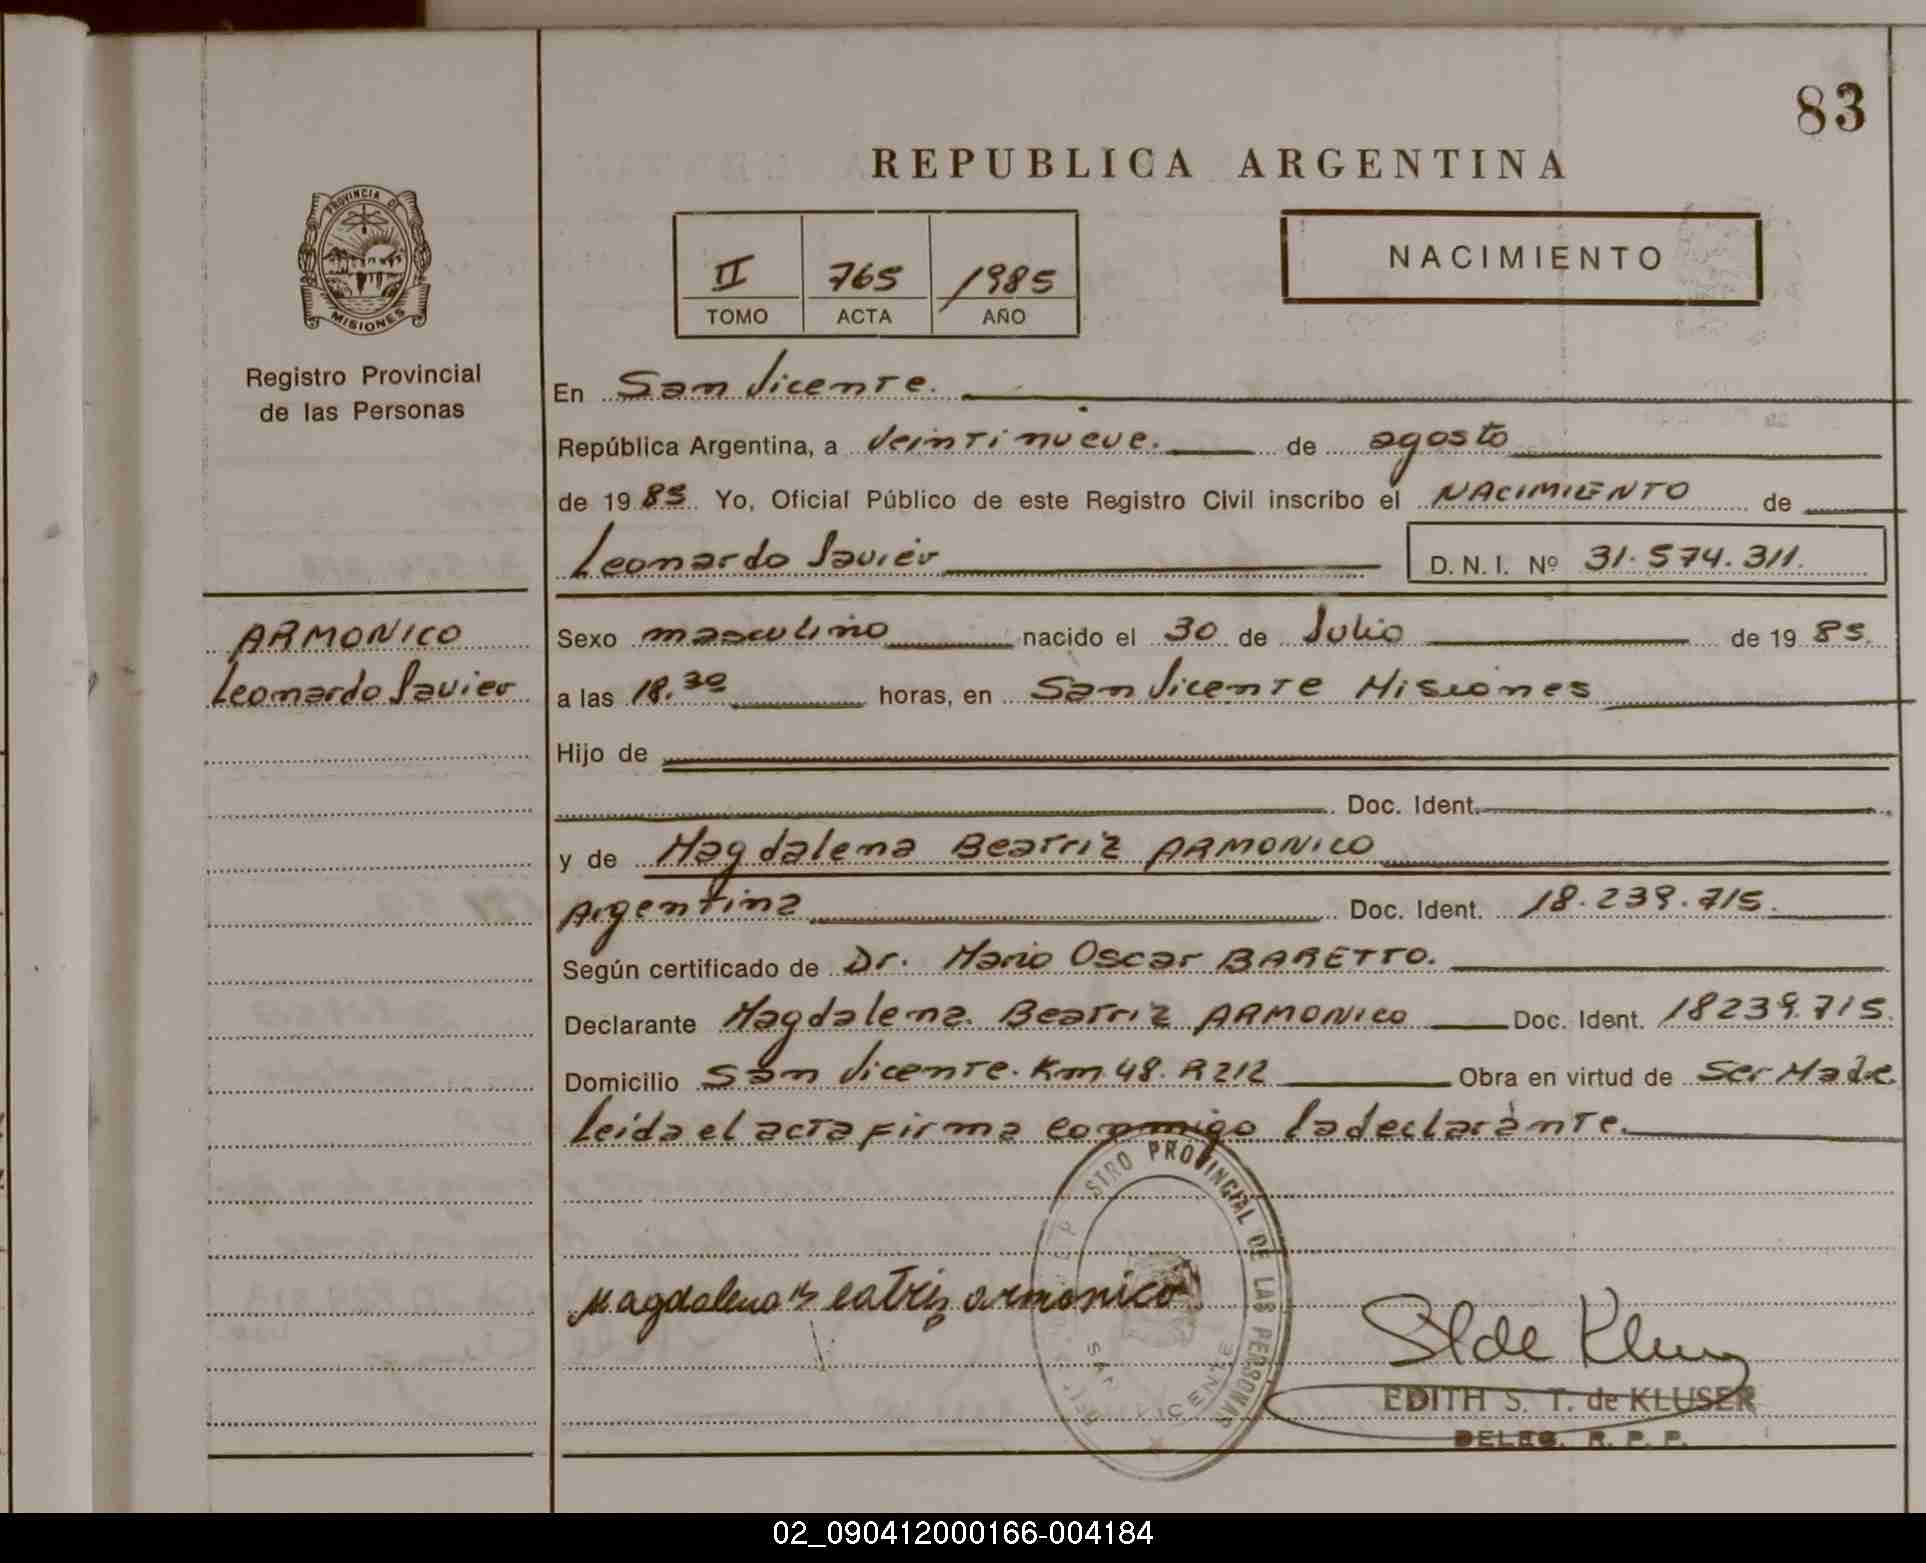 83
REPUBLICA ARGENTINA
PROVINCIA DE
MISIONES
Registro Provincial
de las Personas
II 765 1985
TOMO ACTA AÑO
NACIMIENTO
En San Vicente.
República Argentina, a Veintinueve. de agosto
de 19 85. Yo, Oficial Público de este Registro Civil inscribo el NACIMIENTO de
Leonardo Javier D. N. I. Nº 31.574.311.
ARMONICO
Leonardo Javier
Sexo masculino nacido el 30 de Julio de 19 85.
a las 18.30 horas, en San Vicente Misiones
Hijo de
Doc. Ident.
y de Magdalena Beatriz ARMONICO
Argentina Doc. Ident. 18.239.715.
Según certificado de Dr. Mario Oscar BARETTO.
Declarante Magdalena Beatriz ARMONICO Doc. Ident. 18239.715.
Domicilio San Vicente. Km 48. R212 Obra en virtud de Ser Madre
Leída el acta firma conmigo la declarante.
STRO PROVINCIAL DE LAS PERSONAS
SAN VICENTE
Magdalena Beatris armonico
EDITH S. T. de KLUSER
DELEG. R. P. P.
02_090412000166-004184